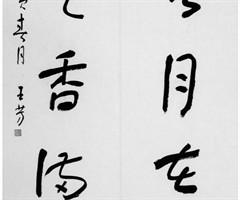 月在
香满
春月 王芳